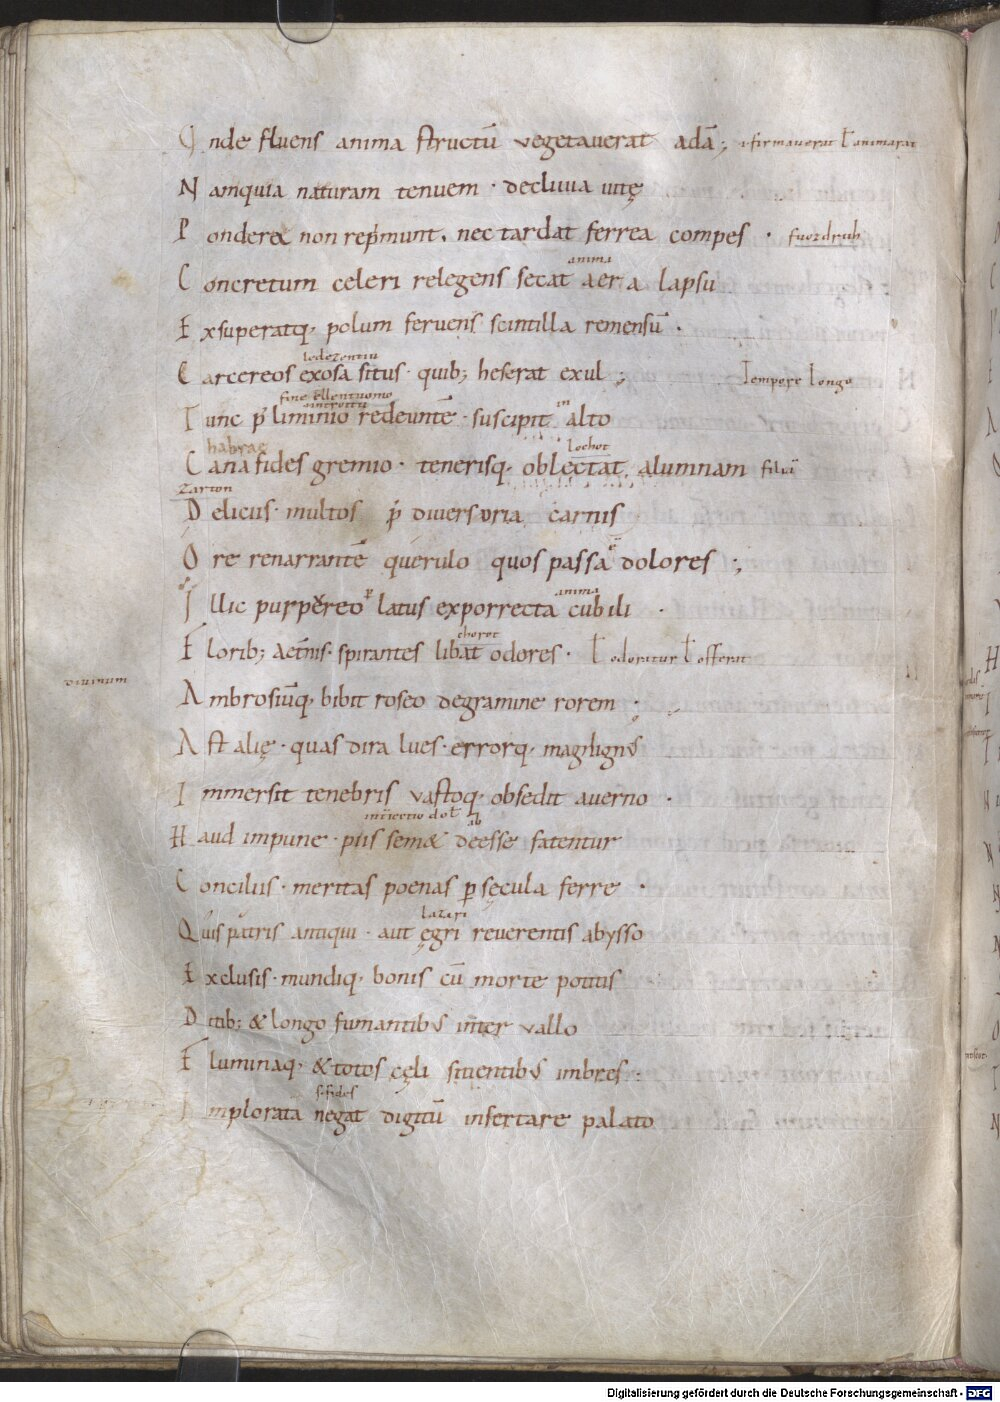 Unde fluens anima structū vegetaverat adā; i firmaverat ł animarat
N amquia naturam tenuem · decliua uitę
P onderæ non rep̄munt, nec tardat ferrea compes · fuozdruh
anima
C oncretum celeri relegens secat aera lapsu
E xsuperatq; polum feruens scintilla remensū ·
ledezentiu
C arcereos exosa situs · quib; heserat exul ; Tempore longo
fine ellentuomo
introitu in
T unc p̄ liminio redeuntē · suscipit alto
habrae lochot
C ana fides gremio · tenerisq; oblectat alumnam filiā
Zarton
D eliciis · multos p̄ diversoria carnis
O re renarrantē querulo quos passa ē dolores ;
anima
I llic purpereo latus exporrecta cubili ·
choret
F lorib; aet̄nis · spirantes libat odores · ł odoritur ł offerat
diuinum
A mbrosiūq; bibit roseo degramine rorem ·
A st alię · quas dira lues · errorq; malignus
I mmersit tenebris vastoq; obsedit averno ·
ab
H aud impune · piis semæ deesse fatentur
C onciliis · meritas poenas p sęcula ferre ·
lazari
Q uis patris antiqui · aut ęgri reverentis abysso
E xclusis · mundiq; bonis cū morte potitis
D itib; & longo fumantibus int̄er vallo
F luminaq; & totos cęli sitientibus imbres ·
s. fides
I mplorata negat digitū insertare palato
Digitalisierung gefördert durch die Deutsche Forschungsgemeinschaft - DFG